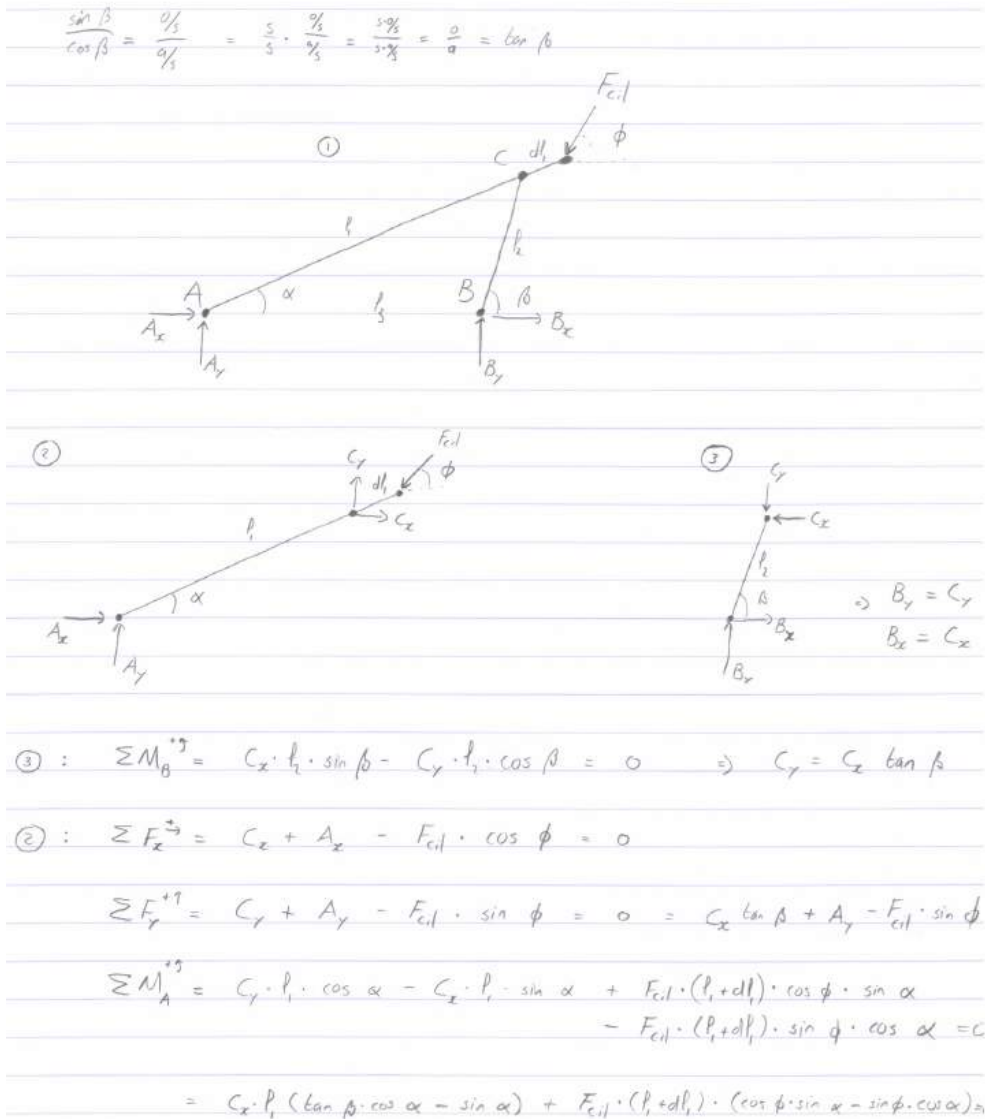 sin β / cos β = (o/s) / (a/s) = s/s · (o/s) / (a/s) = (s·o/s) / (s·a/s) = o/a = tan β
F_cil
① C dl₁ φ
l₁ l₂
A α l₃ B β
A_x B_x
A_y B_y
② C_y F_cil ③ C_y
dl₁ φ C_x
l₁ C_x l₂
α β ⇒ B_y = C_y
A_x B_x B_x = C_x
A_y B_y
③ : ΣM_B^+↺ = C_x · l₂ · sin β - C_y · l₂ · cos β = 0 ⇒ C_y = C_x tan β
② : ΣF_x^+→ = C_x + A_x - F_cil · cos φ = 0
ΣF_y^+↑ = C_y + A_y - F_cil · sin φ = 0 = C_x tan β + A_y - F_cil · sin φ
ΣM_A^+↺ = C_y · l₁ · cos α - C_x · l₁ · sin α + F_cil · (l₁+dl₁) · cos φ · sin α
- F_cil · (l₁+dl₁) · sin φ · cos α =
= C_x · l₁ (tan β · cos α - sin α) + F_cil · (l₁+dl₁) · (cos φ · sin α - sin φ · cos α) =